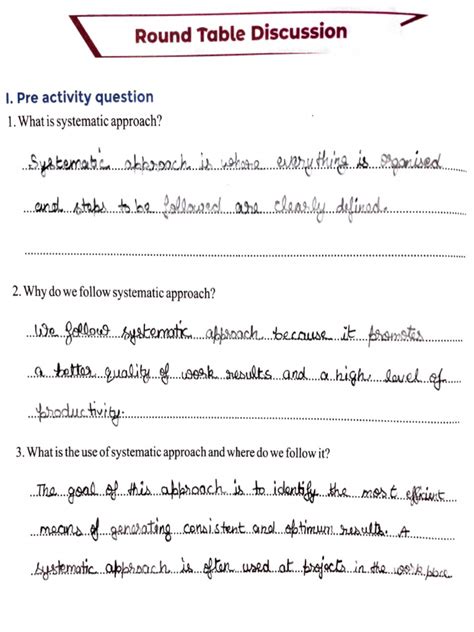 Round Table Discussion
I. Pre activity question
1. What is systematic approach?
Systematic approach is where everything is organised
and steps to be followed are clearly defined.
2. Why do we follow systematic approach?
We follow systematic approach because it promotes
a better quality of work results and a high level of
productivity.
3. What is the use of systematic approach and where do we follow it?
The goal of this approach is to identify the most efficient
means of generating consistent and optimum results. A
systematic approach is often used at projects in the workplace